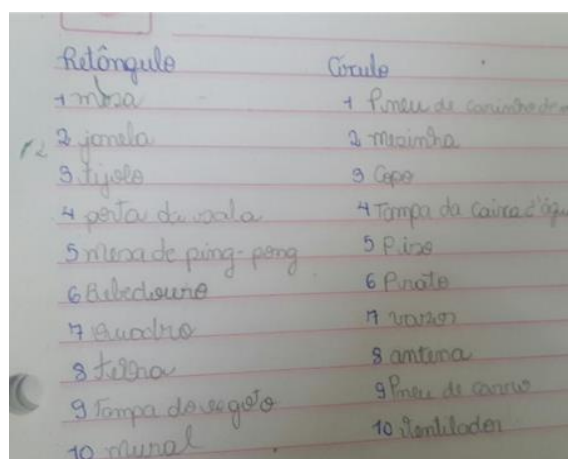 Retângulo
1 mesa
2 janela
3 tijolo
4 porta da sala
5 mesa de ping-pong
6 Bebedouro
7 Quadro
8
9 Tampa do esgoto
10 mural
Círculo
1 Pneu de carrinho de
2 mesinha
3 Copo
4 Tampa da caixa d'água
5 Piso
6 Pirate
7
8 antena
9 Pneu de carro
10 Ventilador